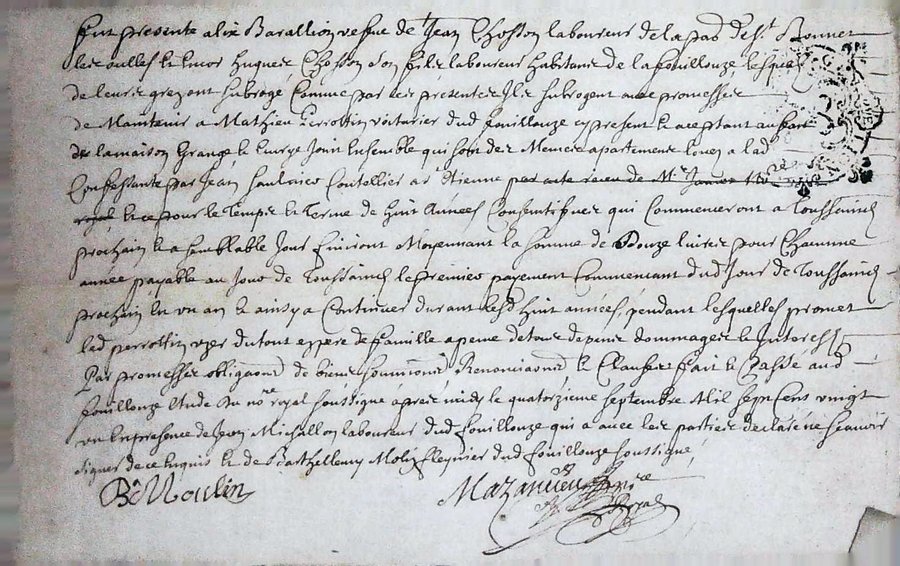 Fut presente alix Barallion vefve de Jean Chosson laboureur de la par de St Bonnet
les oulles & encor Hugues Chosson son fils laboureur habitans de la fouillouze, lesquels
de leurs gre ont subrogé Comme par ces presentes Ils subrogent avec promesses
de Maintenir a Mathieu perrottin voiturier dud fouillouze cy present & aceptant au fait
de la maison Grange & Jouir Ensemble qui sont des Mesmes apartements loues a lad
Confessante par Jean Coutellier a St Etienne par acte receu de Me Janvier no
royal, & ce pour le Temps & Terme de huit Années Consecutifves qui Commenceront a Toussaincts
prochain & a semblable Jour finiront Moyennant la somme de Douze livres pour Chacune
année payable au Jour de Toussaincts le premier payement Commencant dud Jour de Toussaincts
prochain en un an & ainsy a Continuer durant lesd huit années, pendant lesquelles promet
led perrottin uzer du tout en pere de famille a peine de tous depens dommages & Interests
Par promesses obligaons de biens soumissions Renonciaons & Clauses fait & Passé aud
fouillouze Etude du nore royal soussigné apres midy le quatorzieme septembre Mil sept Cent vingt
un En presence de Jean Michallon laboureur dud fouillouze qui a avec les parties declaré ne scavoir
signer de ce Enquis & de Barthellemy Molin dud fouillouze soussigné
B Moulin
Mazancieu nore
Royal